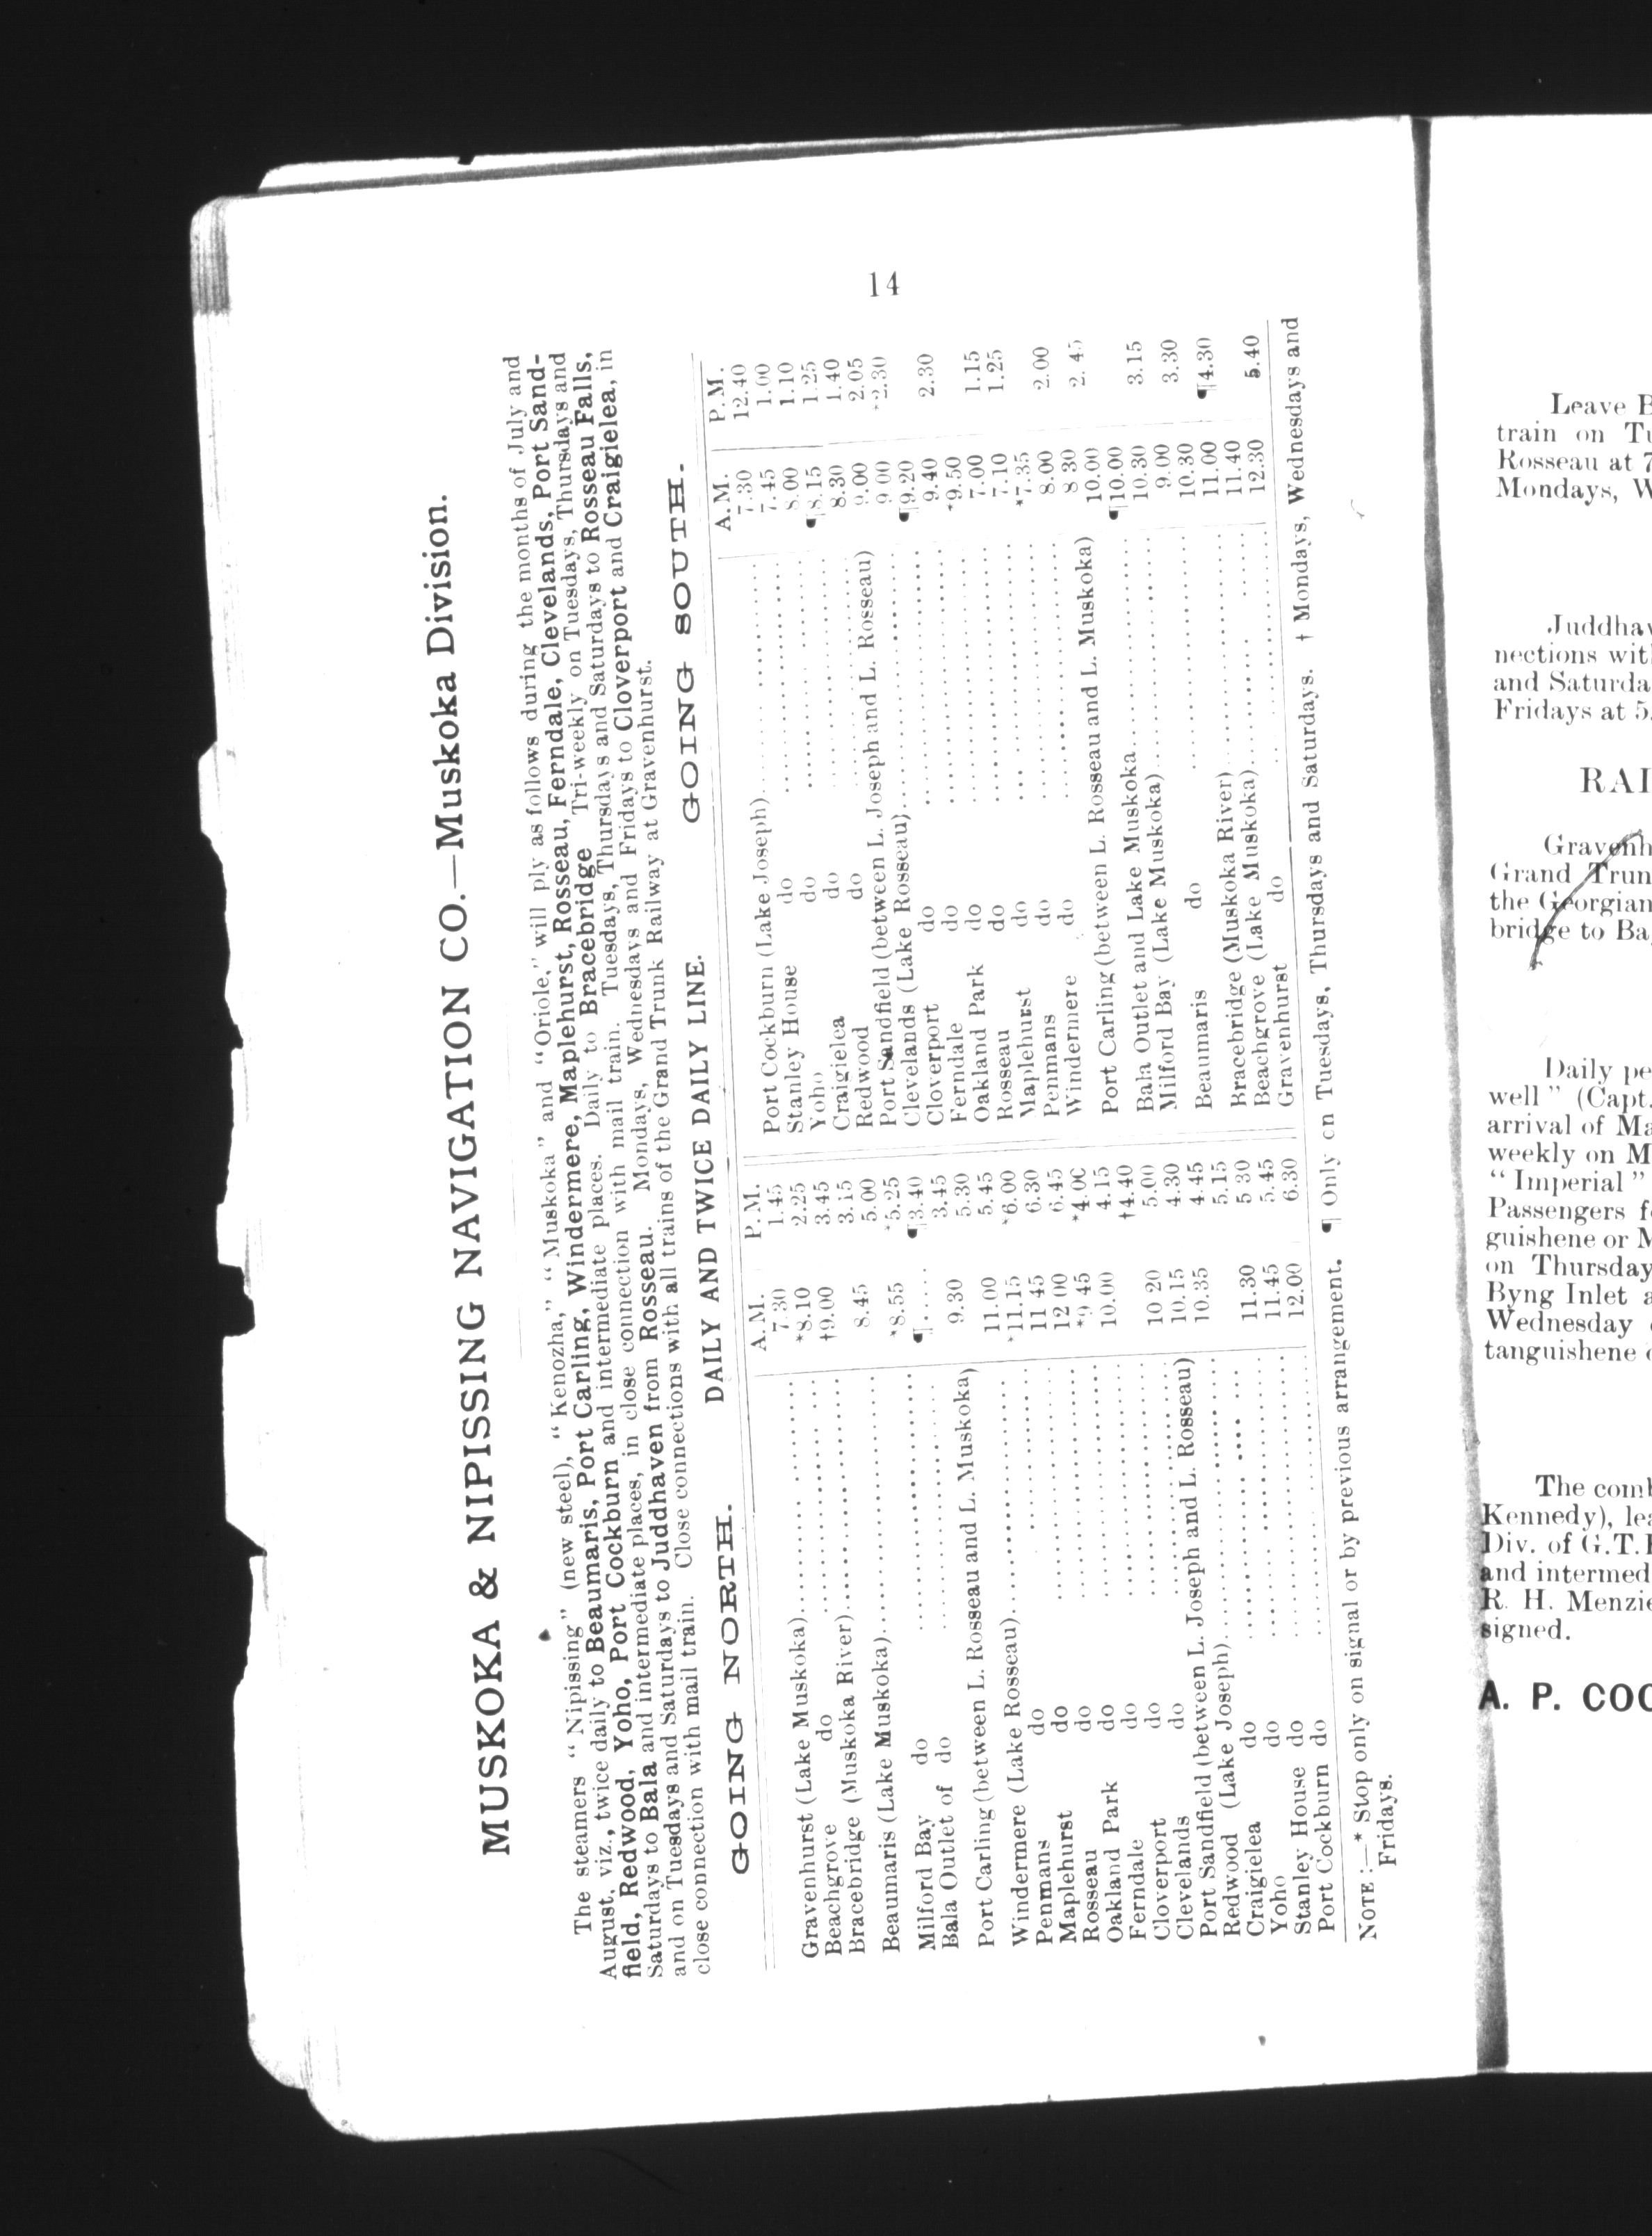 14
MUSKOKA & NIPISSING NAVIGATION CO.—Muskoka Division.
The steamers "Nipissing" (new steel), "Kenozha," "Muskoka" and "Oriole," will ply as follows during the months of July and
August, viz., twice daily to Beaumaris, Port Carling, Windermere, Maplehurst, Rosseau, Ferndale, Clevelands, Port Sand-
field, Redwood, Yoho, Port Cockburn and intermediate places. Daily to Bracebridge Tri-weekly on Tuesdays, Thursdays and
Saturdays to Bala and intermediate places, in close connection with mail train. Tuesdays, Thursdays and Saturdays to Rosseau Falls,
and on Tuesdays and Saturdays to Juddhaven from Rosseau. Mondays, Wednesdays and Fridays to Cloverport and Craigielea, in
close connection with mail train. Close connections with all trains of the Grand Trunk Railway at Gravenhurst.
GOING NORTH. DAILY AND TWICE DAILY LINE. GOING SOUTH.
A.M. P.M.
Gravenhurst (Lake Muskoka) 7.30 1.45
Beachgrove do *8.10 2.25
Bracebridge (Muskoka River) †9.00 3.45
Beaumaris (Lake Muskoka) 8.45 3.15
5.00
Milford Bay do *8.55 *5.25
Bala Outlet of do ¶.... ¶3.40
3.45
Port Carling (between L. Rosseau and L. Muskoka) 9.30 5.30
11.00 5.45
Windermere (Lake Rosseau) *11.15 *6.00
Penmans do 11 45 6.30
Maplehurst do 12 00 6.45
Rosseau do *9 45 *4.00
Oakland Park do 10.00 4.15
Ferndale do †4.40
Cloverport do 10 20 5.00
Clevelands do 10.15 4.30
Port Sandfield (between L. Joseph and L. Rosseau) 10.35 4.45
Redwood (Lake Joseph) 5.15
Craigielea do 11.30 5 30
Yoho do 11.45 5.45
Stanley House do 12.00 6.30
Port Cockburn do
A.M. P.M.
Port Cockburn (Lake Joseph) 7.30 12.40
Stanley House do 7.45 1.00
Yoho do 8.00 1.10
Craigielea do ¶8.15 1.25
Redwood do 8.30 1.40
Port Sandfield (between L. Joseph and L. Rosseau) 9.00 2.05
Clevelands (Lake Rosseau) 9 00 *2.30
Cloverport do ¶9.20
Ferndale do 9.40 2.30
Oakland Park do *9.50
Rosseau do 7.00 1.15
Maplehurst do 7.10 1.25
Penmans do *7.35
Windermere do 8.00 2.00
8 30 2.45
Port Carling (between L. Rosseau and L. Muskoka) 10.00
Bala Outlet and Lake Muskoka ¶10.00
Milford Bay (Lake Muskoka) 10.30 3.15
Beaumaris do 9.00 3.30
10.30
Bracebridge (Muskoka River) 11.00 ¶4.30
Beachgrove (Lake Muskoka) 11.40
Gravenhurst do 12.30 5.40
NOTE:—* Stop only on signal or by previous arrangement. ¶ Only on Tuesdays, Thursdays and Saturdays. † Mondays, Wednesdays and
Fridays.
Leave B
train on Tu
Rosseau at 7
Mondays, W
Juddhav
nections with
and Saturda
Fridays at 5.
RAI
Gravenh
Grand Trun
the Georgian
bridge to Ba
Daily pe
well" (Capt.
arrival of Ma
weekly on M
"Imperial"
Passengers f
guishene or M
on Thursday
Byng Inlet a
Wednesday
tanguishene
The comb
Kennedy), lea
Div. of G.T.
and intermed
R. H. Menzie
signed.
A. P. COC